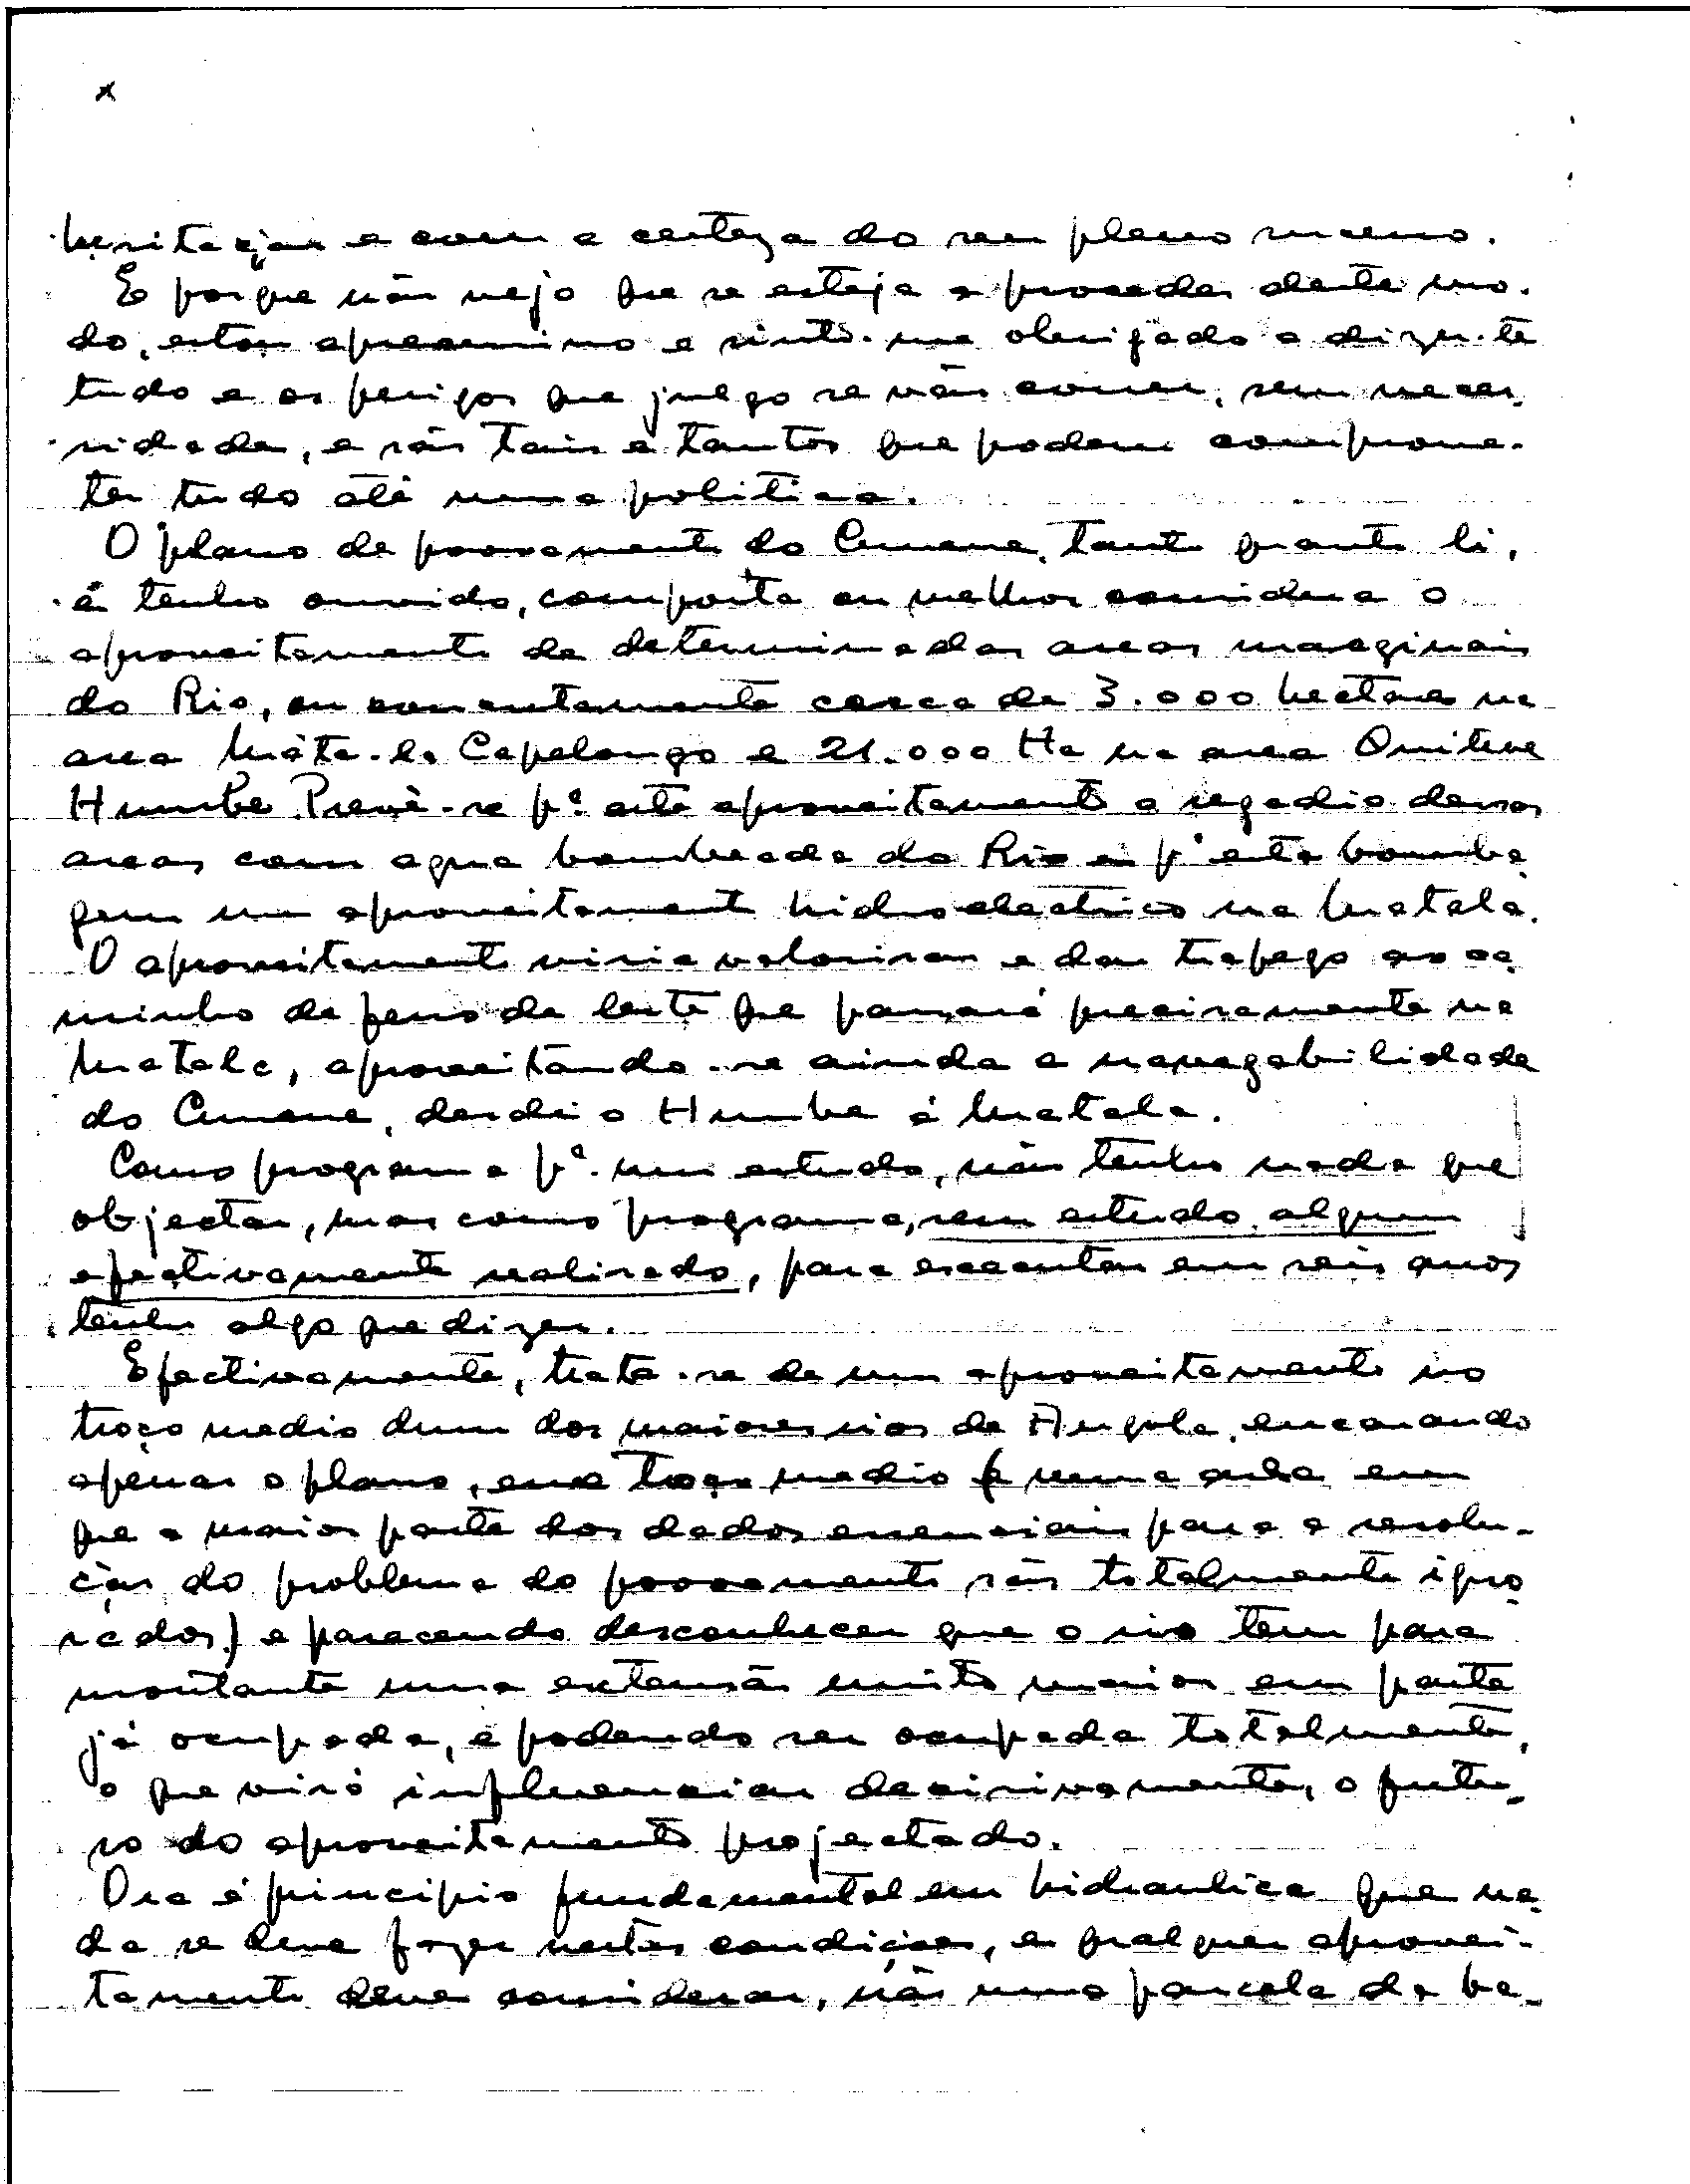 x
hesitação e com a certeza do seu pleno sucesso.
E porque não vejo que se esteja a proceder deste mo-
do, estou apreensivo e sinto-me obrigado a dizer-te
tudo e os perigos que julgo se vão correr, sem neces-
sidade, e são tais e tantos que podem comprome-
ter tudo até uma politica.
O plano de povoamento do Cunene, tanto quanto li,
e tenho ouvido, comporta ou melhor considera o
aproveitamento de determinadas areas marginais
do Rio, ou concretamente cerca de 3.000 hectares na
area Capelongo e 21.000 Ha na area Quiteve
Humbe. Prevê-se pª este aproveitamento o regadio dessas
areas com agua bombeada do Rio e pª esta bomba-
gem um aproveitamento hidroelectrico na Matala.
O aproveitamento viria valorisar e dar trafego ao ca-
minho de ferro de leste que passará precisamente na
Matala, aproveitando-se ainda a navegabilidade
do Cunene, desde o Humbe á Matala.
Como programa pª um estudo, não tenho nada que
objectar, mas como programa, sem estudo algum
efectivamente realisado, para executar em seis anos
tenho algo que dizer.
Efectivamente, trata-se de um aproveitamento no
troço medio dum dos maiores rios de Angola, encarando
apenas o plano, esse troço medio (e numa em
que a maior parte dos dados essenciais para a resolu-
ção do problema do povoamento são totalmente igno-
rados) e parecendo desconhecer que o rio tem para
montante uma extensão muito maior em parte
já ocupada, e podendo ser ocupada totalmente,
o que virá influenciar decisivamente, o futu-
ro do aproveitamento projectado.
Ora é principio fundamental em hidraulica que na-
da se deve fazer nestas condições, e qualquer aprovei-
tamento deve considerar, não uma parcela da ba-